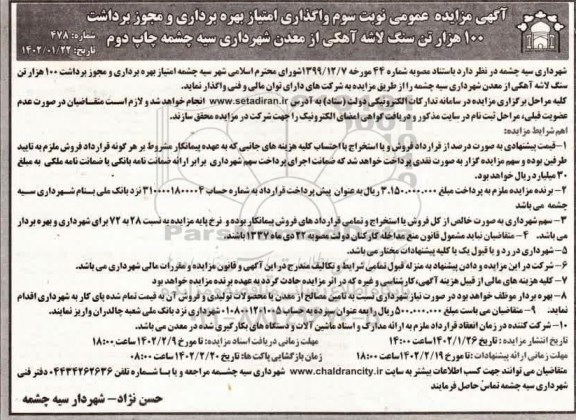 آگهی مزایده عمومی نوبت سوم واگذاری امتیاز بهره برداری و مجوز برداشت
۱۰۰ هزار تن سنگ لاشه آهکی از معدن شهرداری سیه چشمه چاپ دوم
شماره: ۴۷۸
تاریخ: ۱۴۰۲/۰۱/۲۲
شهرداری سیه چشمه در نظر دارد باستناد مصوبه شماره ۴۴ مورخه ۱۳۹۹/۱۲/۷ شورای محترم اسلامی شهر سیه چشمه امتیاز بهره برداری و مجوز برداشت ۱۰۰ هزار تن
سنگ لاشه آهکی از معدن شهرداری سیه چشمه را از طریق مزایده به شرکت های دارای توان مالی و فنی واگذار نماید.
کلیه مراحل برگزاری مزایده در سامانه تدارکات الکترونیکی دولت (ستاد) به آدرس www.setadiran.ir انجام خواهد شد و لازم است متقاضیان در صورت عدم
عضویت قبلی، مراحل ثبت نام در سایت مذکور و دریافت گواهی امضای الکترونیک را جهت شرکت در مزایده محقق سازند.
اهم شرایط مزایده:
۱- قیمت پیشنهادی به صورت درصد از قرارداد فروش و یا استخراج با احتساب کلیه هزینه های جانبی که به عهده پیمانکار مشروط بر هر گونه قرارداد فروش ملزم به تایید
طرفین بوده و سهم مزایده گزار به صورت نقدی پرداخت خواهد شد که ضمانت اجرای پرداخت سهم شهرداری برابر ارائه ضمانت نامه بانکی یا ضمانت نامه ملکی به مبلغ
۳۰ میلیارد ریال خواهد بود.
۲- برنده مزایده ملزم به پرداخت مبلغ ۳.۱۵۰.۰۰۰.۰۰۰ ریال به عنوان پیش پرداخت قرارداد به شماره حساب ۳۱۰۰۰۰۱۸۰۰۰۰۴ نزد بانک ملی بنام شهرداری سیه
چشمه می باشد
۳- سهم شهرداری به صورت خالص از کل فروش یا استخراج و تمامی قرارداد های فروش پیمانکار بوده و نرخ پایه مزایده به نسبت ۲۸ به ۷۲ برای شهرداری و بهره بردار
می باشد. ۴- متقاضیان نباید مشمول قانون منع مداخله کارکنان دولت مصوبه ۲۲ دی ماه ۱۳۳۷ باشند.
۵- شهرداری در رد و یا قبول یک یا کلیه پیشنهادات مختار می باشد.
۶- شرکت در این مزایده و دادن پیشنهاد به منزله قبول تمامی شرایط و تکالیف مندرج در این آگهی و قانون مزایده و مقررات مالی شهرداری می باشد.
۷- کلیه هزینه های مالی از قبیل هزینه آگهی، کارشناسی و غیره که در اثر مزایده حادث گردیده به عهده برنده مزایده خواهد بود
۸- بهره بردار موظف خواهد بود در صورت نیاز شهرداری نسبت به تامین مصالح از معدن یا محصولات تولیدی و فروش آن به قیمت تمام شده پای کار به شهرداری اقدام
نماید. ۹- متقاضیان می بایست مبلغ ۵۰۰.۰۰۰.۰۰۰ ریال را به عنوان سپرده به حساب شهرداری نزد بانک ملی شعبه چالدران واریز نمایند.
۱۰- شرکت کننده در زمان انعقاد قرارداد ملزم به ارائه مدارک و اسناد ماشین آلات و دستگاه های بکارگیری شده در معدن می باشد.
تاریخ انتشار مزایده: تا مورخ ۱۴۰۲/۱/۲۶ ساعت ۱۴:۰۰ مهلت زمانی دریافت اسناد مزایده: تا مورخ ۱۴۰۲/۲/۹ ساعت ۱۸:۰۰
مهلت زمانی ارائه پیشنهادات: تا مورخ ۱۴۰۲/۲/۱۹ ساعت ۱۸:۰۰ زمان بازگشایی پاکت ها: تاریخ ۱۴۰۲/۲/۲۰ ساعت ۰۸:۰۰
متقاضیان می توانند جهت کسب اطلاعات بیشتر به سایت www.chaldrancity.ir شهرداری سیه چشمه مراجعه و یا با شماره تلفن ۰۴۴۳۴۲۶۲۶۳۶ دفتر فنی
شهرداری سیه چشمه تماس حاصل فرمایند
حسن نژاد- شهردار سیه چشمه